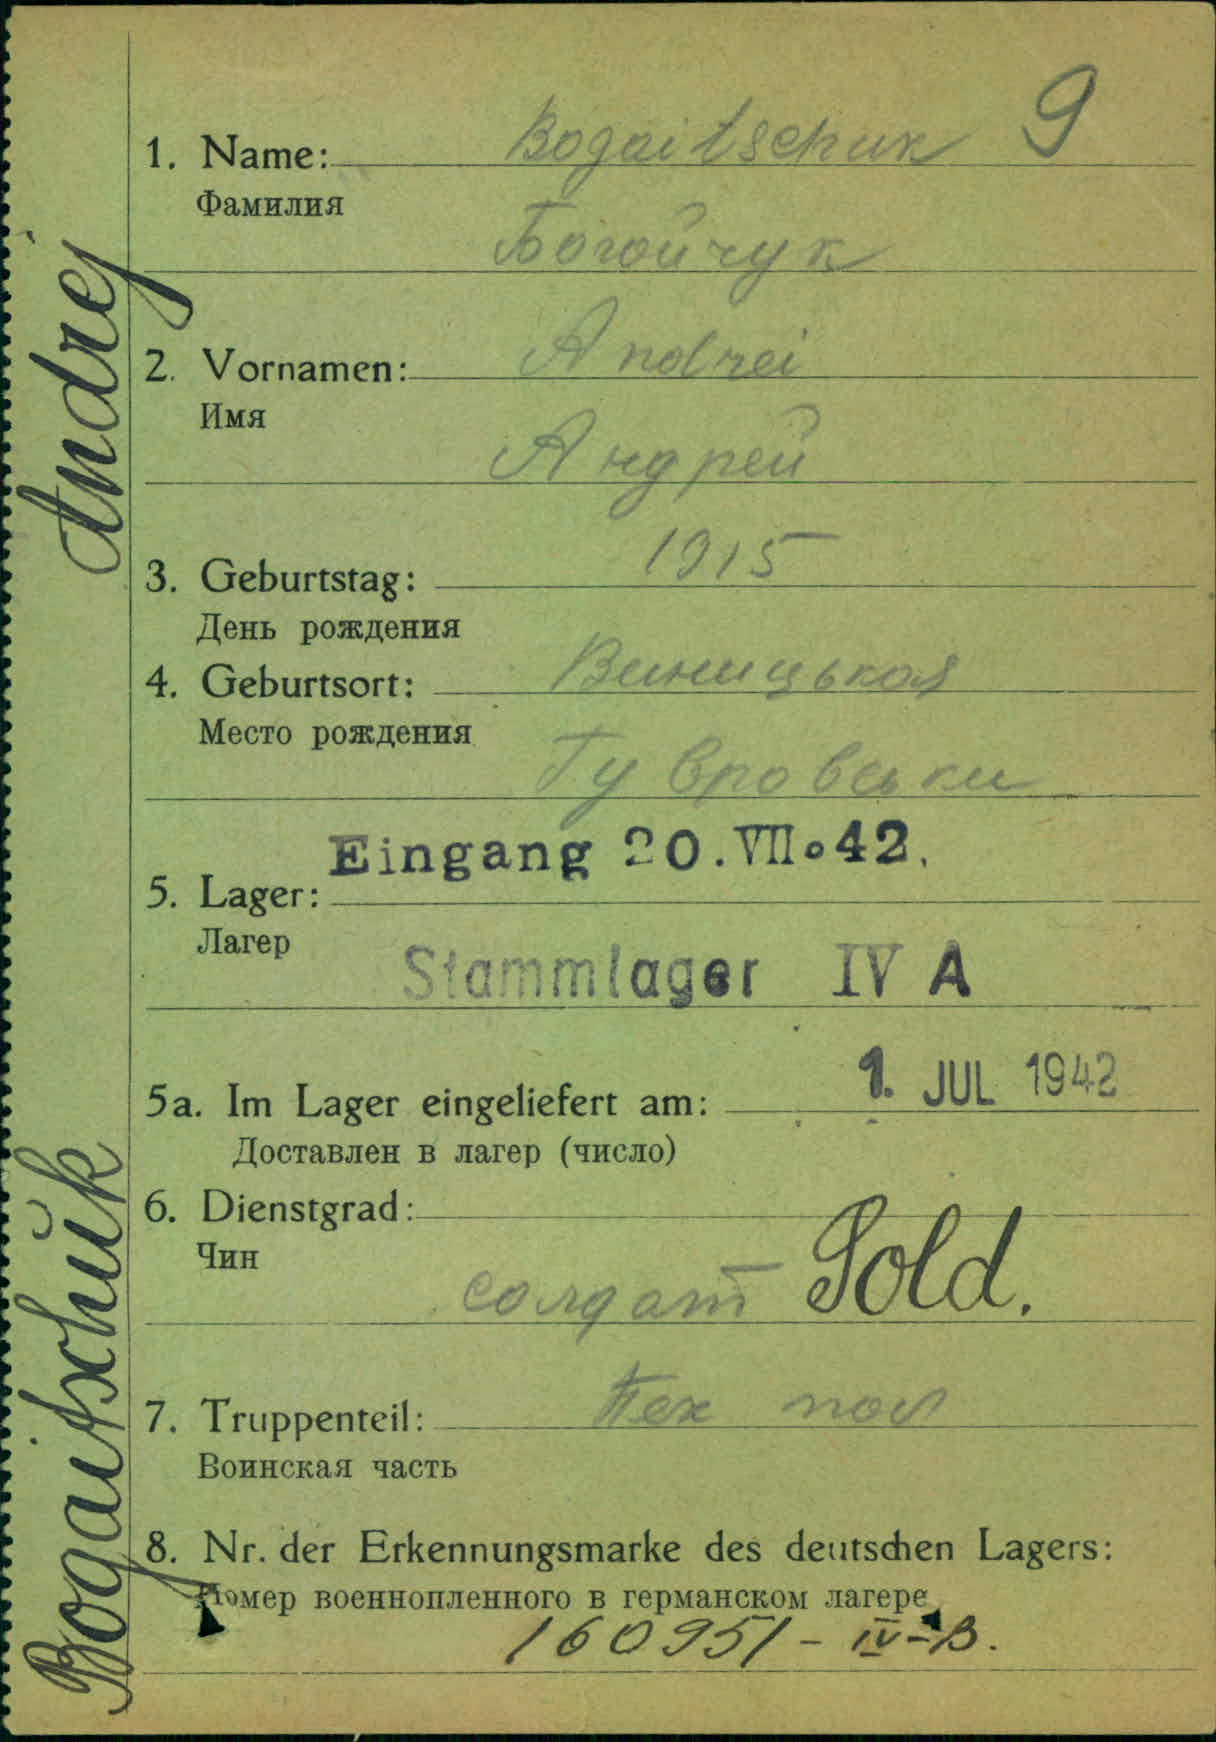 9
1. Name: Bogaitschuk
Фамилия
Богойчук
2. Vornamen: Andrei
Имя
Андрей
3. Geburtstag: 1915
День рождения
4. Geburtsort: Виницькая
Место рождения
Eingang 20.VII.42.
5. Lager:
Лагер
Stammlager IV A
5a. Im Lager eingeliefert am: 1. JUL 1942
Доставлен в лагер (число)
6. Dienstgrad:
Чин
солдат Sold.
7. Truppenteil: пол
Воинская часть
8. Nr. der Erkennungsmarke des deutschen Lagers:
Номер военнопленного в германском лагере
160951 - IV-B.
Bogaitschuk Andrej